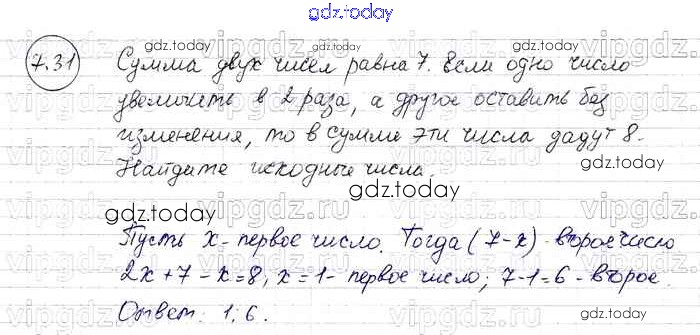 gdz.today
7.31
Сумма двух чисел равна 7. Если одно число
увеличить в 2 раза, а другое оставить без
изменения, то в сумме эти числа дадут 8.
Найдите исходные числа.
Пусть x - первое число. Тогда (7-x) - второе число
2x+7-x=8, x=1 - первое число; 7-1=6 - второе.
Ответ: 1; 6.